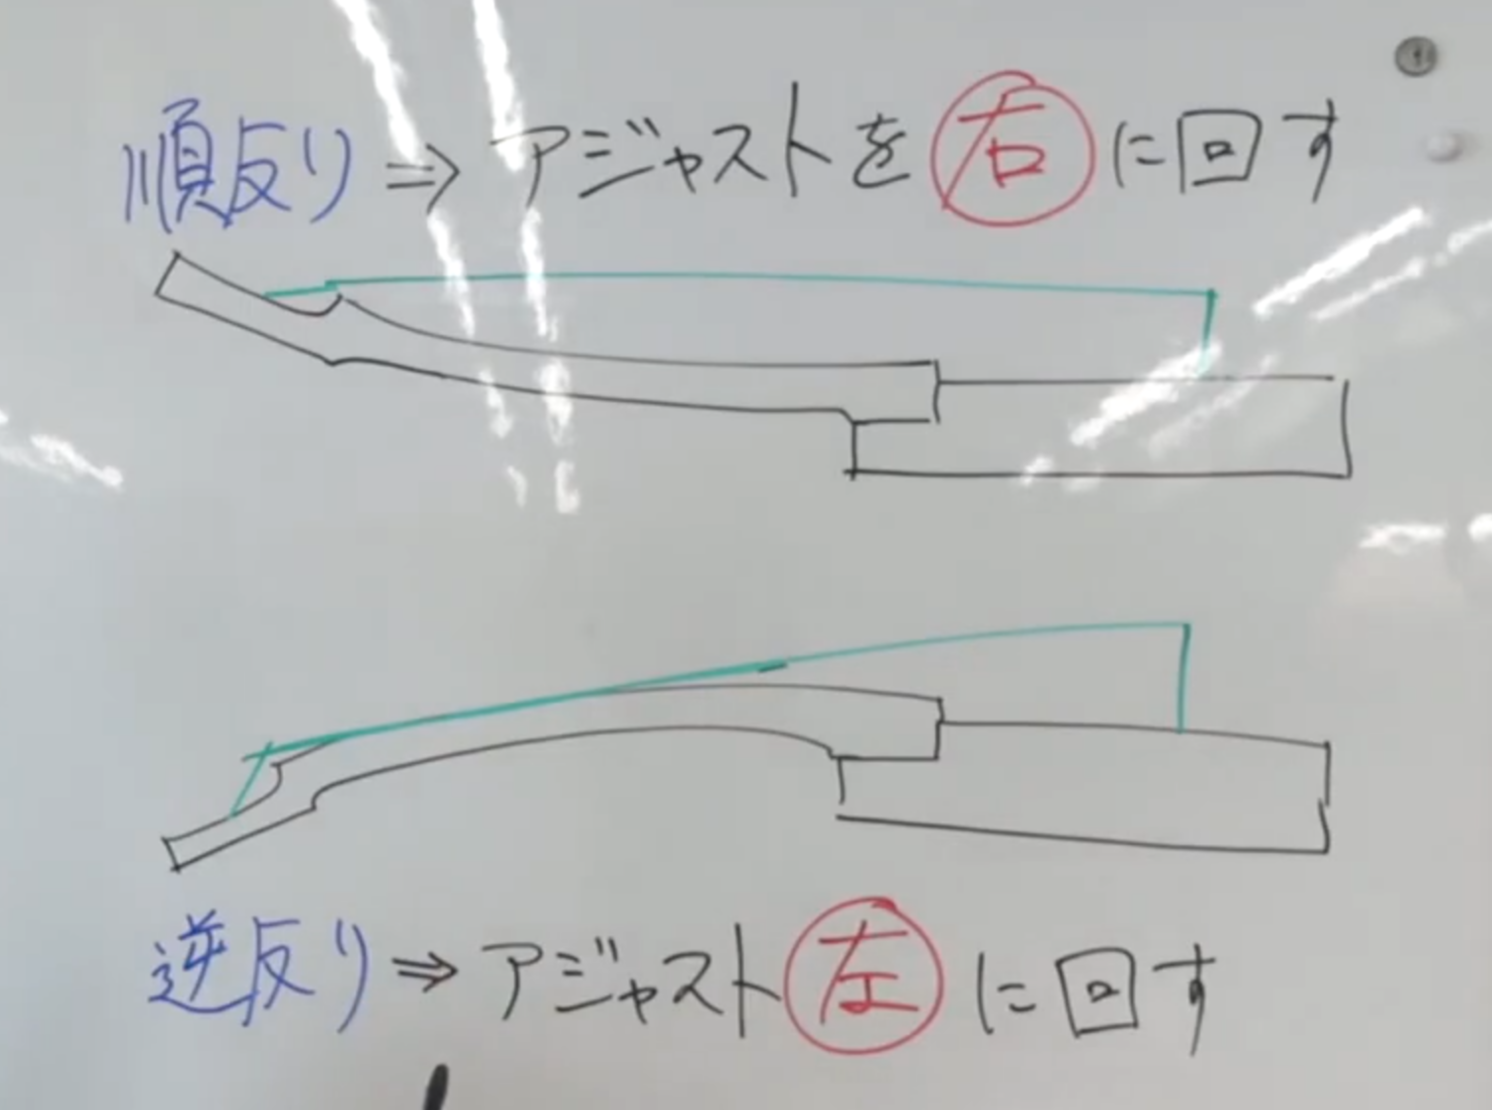 順反り⇒アジャストを右に回す
逆反り⇒アジャスト左に回す